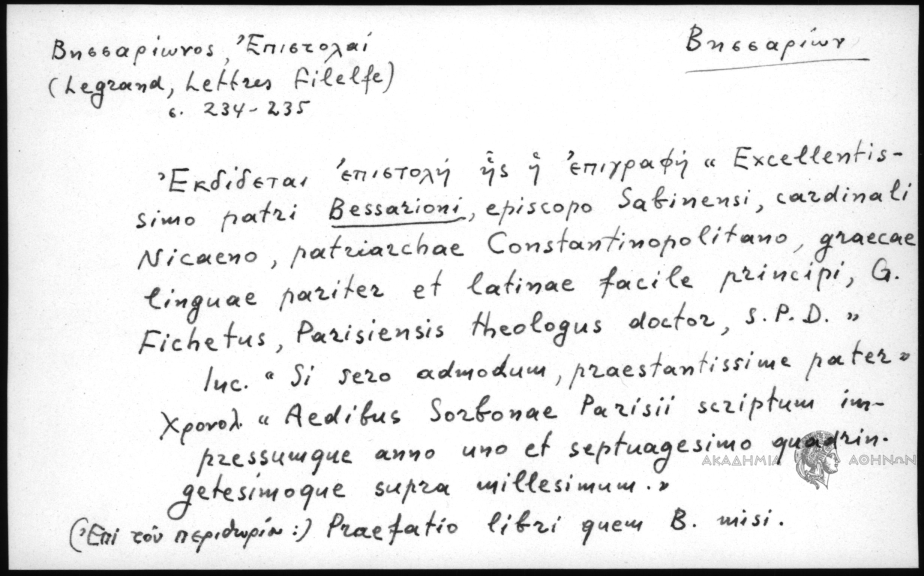 Βησσαρίωνος, Ἐπιστολαί
Βησσαρίων
(Legrand, Lettres Filelfe)
σ. 234-235
Ἐκδίδεται ἐπιστολή ἧς ἡ ἐπιγραφή « Excellentis-
simo patri Bessarioni, episcopo Sabinensi, cardinali
Nicaeno, patriarchae Constantinopolitano, graecae
linguae pariter et latinae facile principi, G.
Fichetus, Parisiensis theologus doctor, S.P.D. »
Inc. « Si sero admodum, praestantissime pater »
Χρονολ « Aedibus Sorbonae Parisii scriptum im-
pressumque anno uno et septuagesimo quadrin-
getesimoque supra millesimum. »
(Ἐπί τοῦ περιθωρίου :) Praefatio libri quem B. misi.
ΑΚΑΔΗΜΙΑ ΑΘΗΝΩΝ